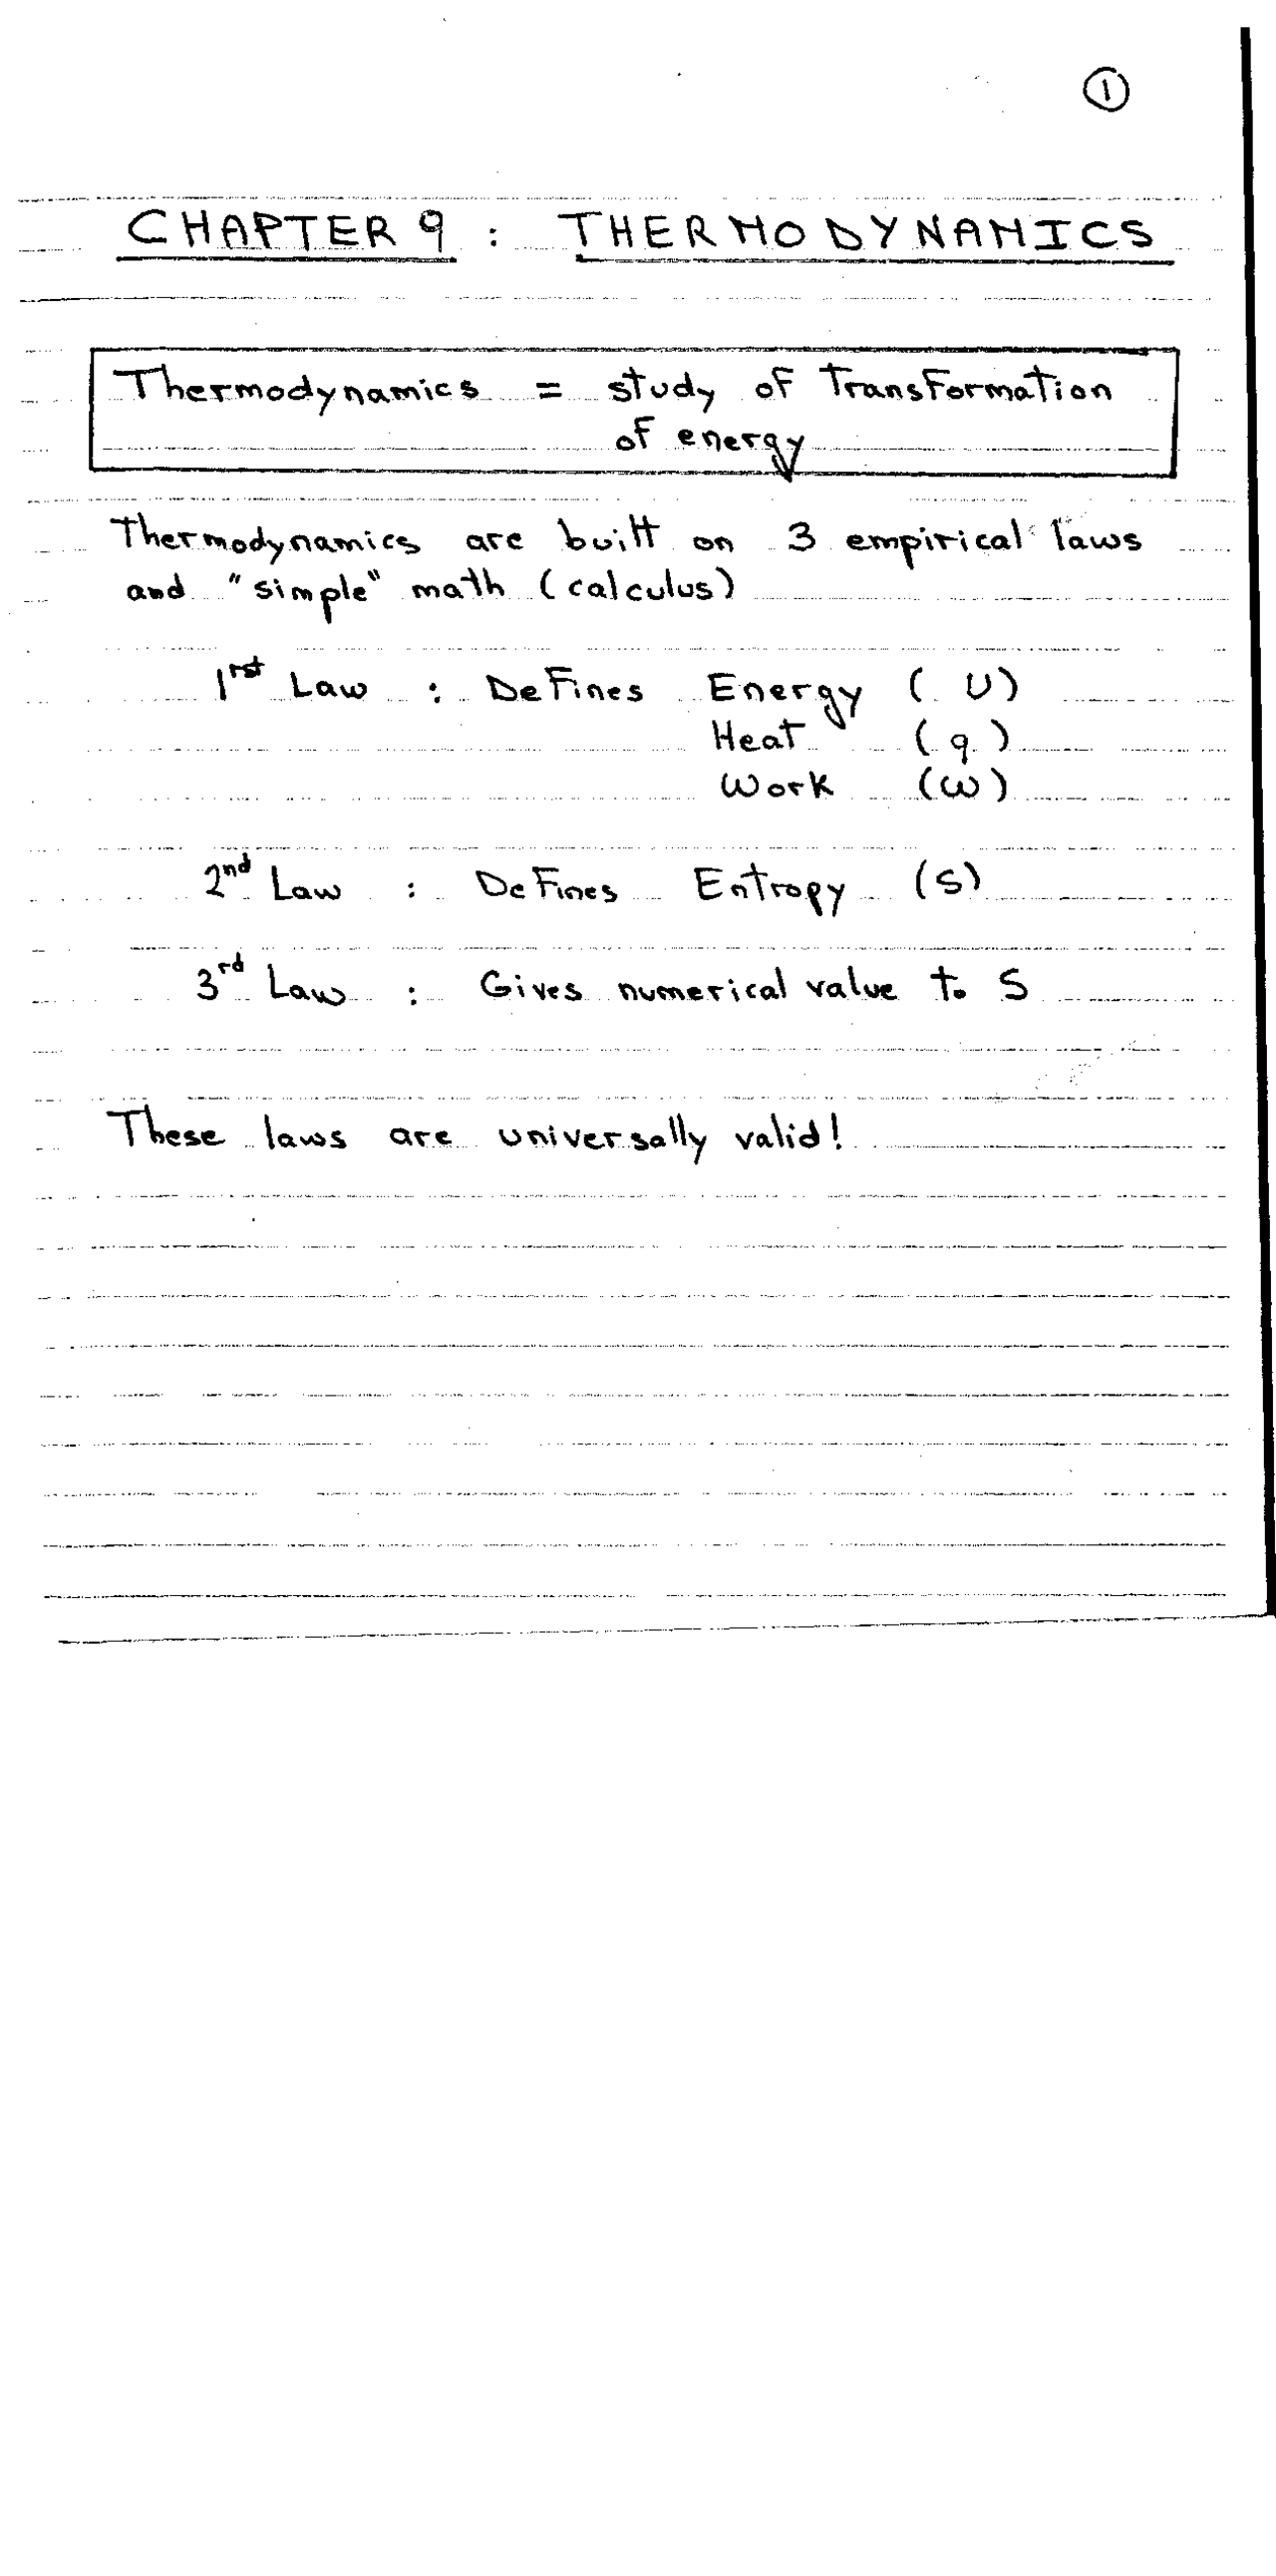 1
CHAPTER 9 : THERMODYNAMICS
Thermodynamics = study of Transformation
of energy
Thermodynamics are built on 3 empirical laws
and "simple" math (calculus)
1rst Law : Defines Energy (U)
Heat (q)
Work (w)
2nd Law : Defines Entropy (S)
3rd Law : Gives numerical value to S
These laws are universally valid!